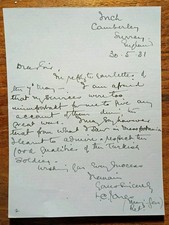 Inch
Camberley
Surrey
England
30-5-31
Dear Sir
In reply to your letter of
the 7th May — I am afraid
that my services were too
unimportant for me to give any
account of them during the
Great War. I may say however
that from what I saw in Mesopotamia
I learnt to admire & respect the
good qualities of the Turkish
Soldier.
Wishing you every success
I remain
Yours sincerely